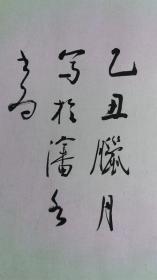 乙丑臘月
写於瀋水